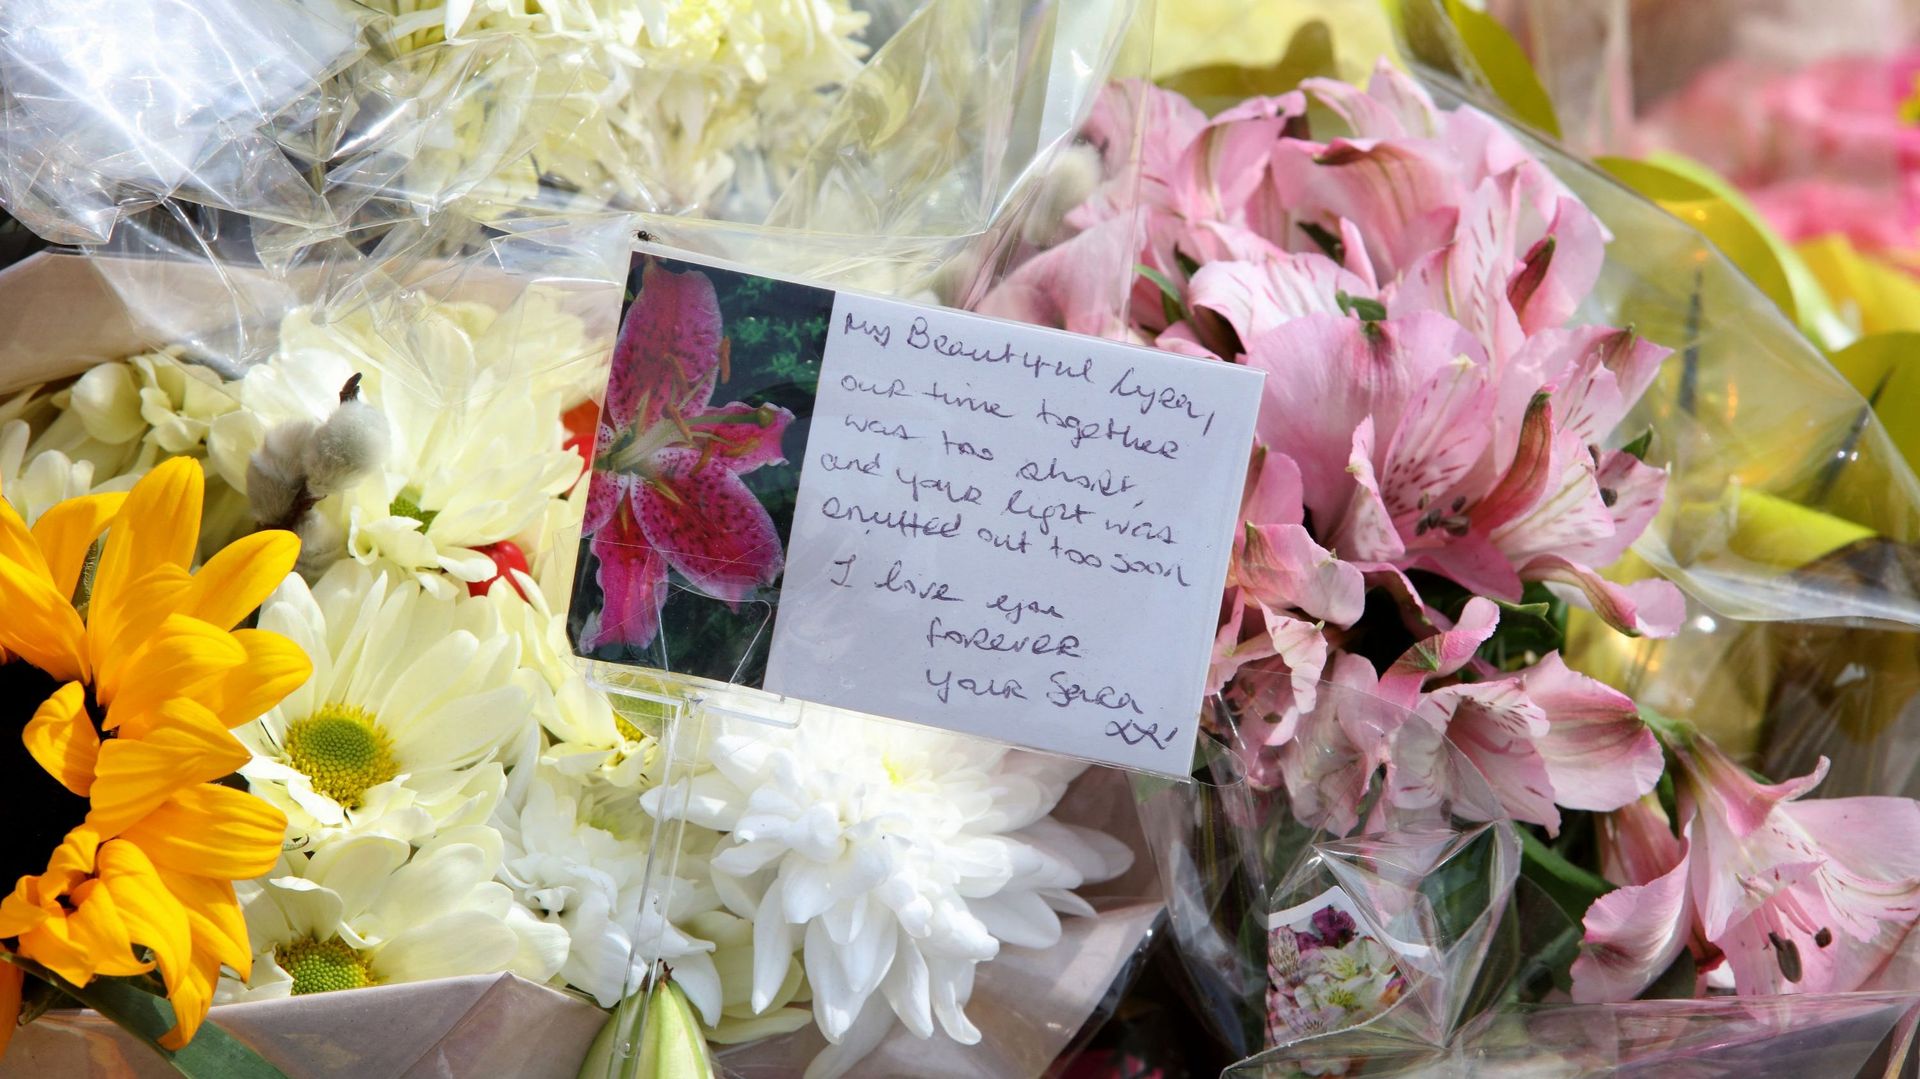 My Beautiful
our time together
was too short,
and your light was
snuffed out too soon
I love you
forever
your
xx